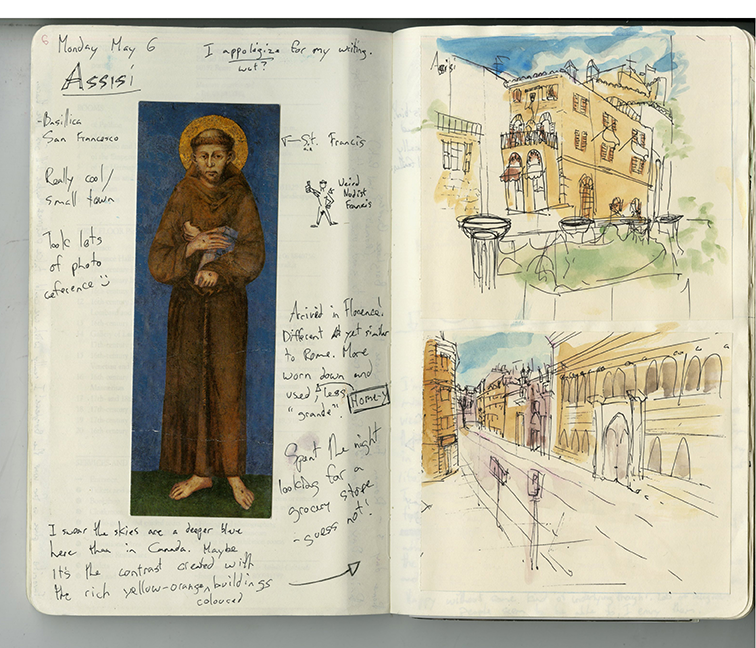 6
Monday May 6
I appologize for my writing.
wut?
Assisi
-Basillica
San Francesco
St. Francis
Really cool/
small town
Weird
Nudist
Francis
Took lots
of photo
reference
Arrived in Florence!
Different yet similar
to Rome. More
worn down and
used, less
"grande".
Home-y
Spent the night
looking for a
grocery store
-guess not!
I swear the skies are a deeper blue
here than in Canada. Maybe
It's the contrast created with
the rich yellow-orange buildings
coloured
Assisi